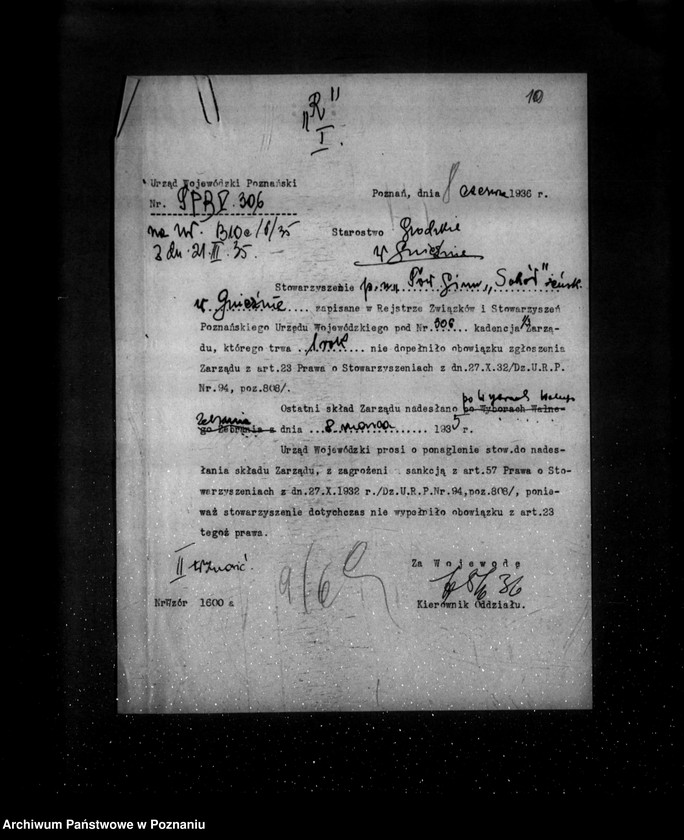 10
"R"
I.
Urząd Wojewódzki Poznański
Nr. SPB V. 306
Poznań, dnia 8 czerwca 1936 r.
na Nr. B10a/8/35
z dn. 21.II.35.
Starostwo Grodzkie
w Gnieźnie
Stowarzyszenie p.n. Tow Gimn „Sokół" żeńsk.
w Gnieźnie .... zapisane w Rejstrze Związków i Stowarzyszeń
Poznańskiego Urzędu Wojewódzkiego pod Nr. 306 ... kadencja Zarzą-
du, którego trwa .. 1 rok ... nie dopełniło obowiązku zgłoszenia
Zarządu z art.23 Prawa o Stowarzyszeniach z dn.27.X.32/Dz.U.R.P.
Nr.94, poz.808/.
po Wyborach Walnego
Ostatni skład Zarządu nadesłano po Wyborach Walne-
Zebrania
go Zebrania z dnia ... 8 marca ........ 1935 r.
Urząd Wojewódzki prosi o ponaglenie stow.do nades-
łania składu Zarządu, z zagrożeni sankcją z art.57 Prawa o Sto-
warzyszeniach z dn.27.X.1932 r./Dz.U.R.P.Nr.94,poz.808/, ponie-
waż stowarzyszenie dotychczas nie wypełniło obowiązku z art.23
tegoż prawa.
II
Za Wojewodę
9/6
8/6 36
NrWzór 1600 a
Kierownik Oddziału.
Archiwum Państwowe w Poznaniu